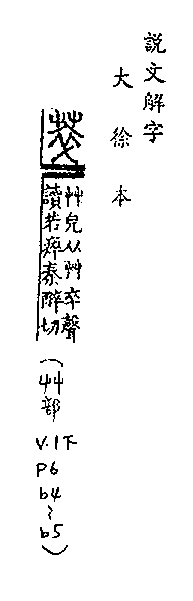 説文解字
大徐本
萃
艸皃从艸卒聲
讀若瘁秦醉切
(艸部
V.1下
P6
b4
~
b5)